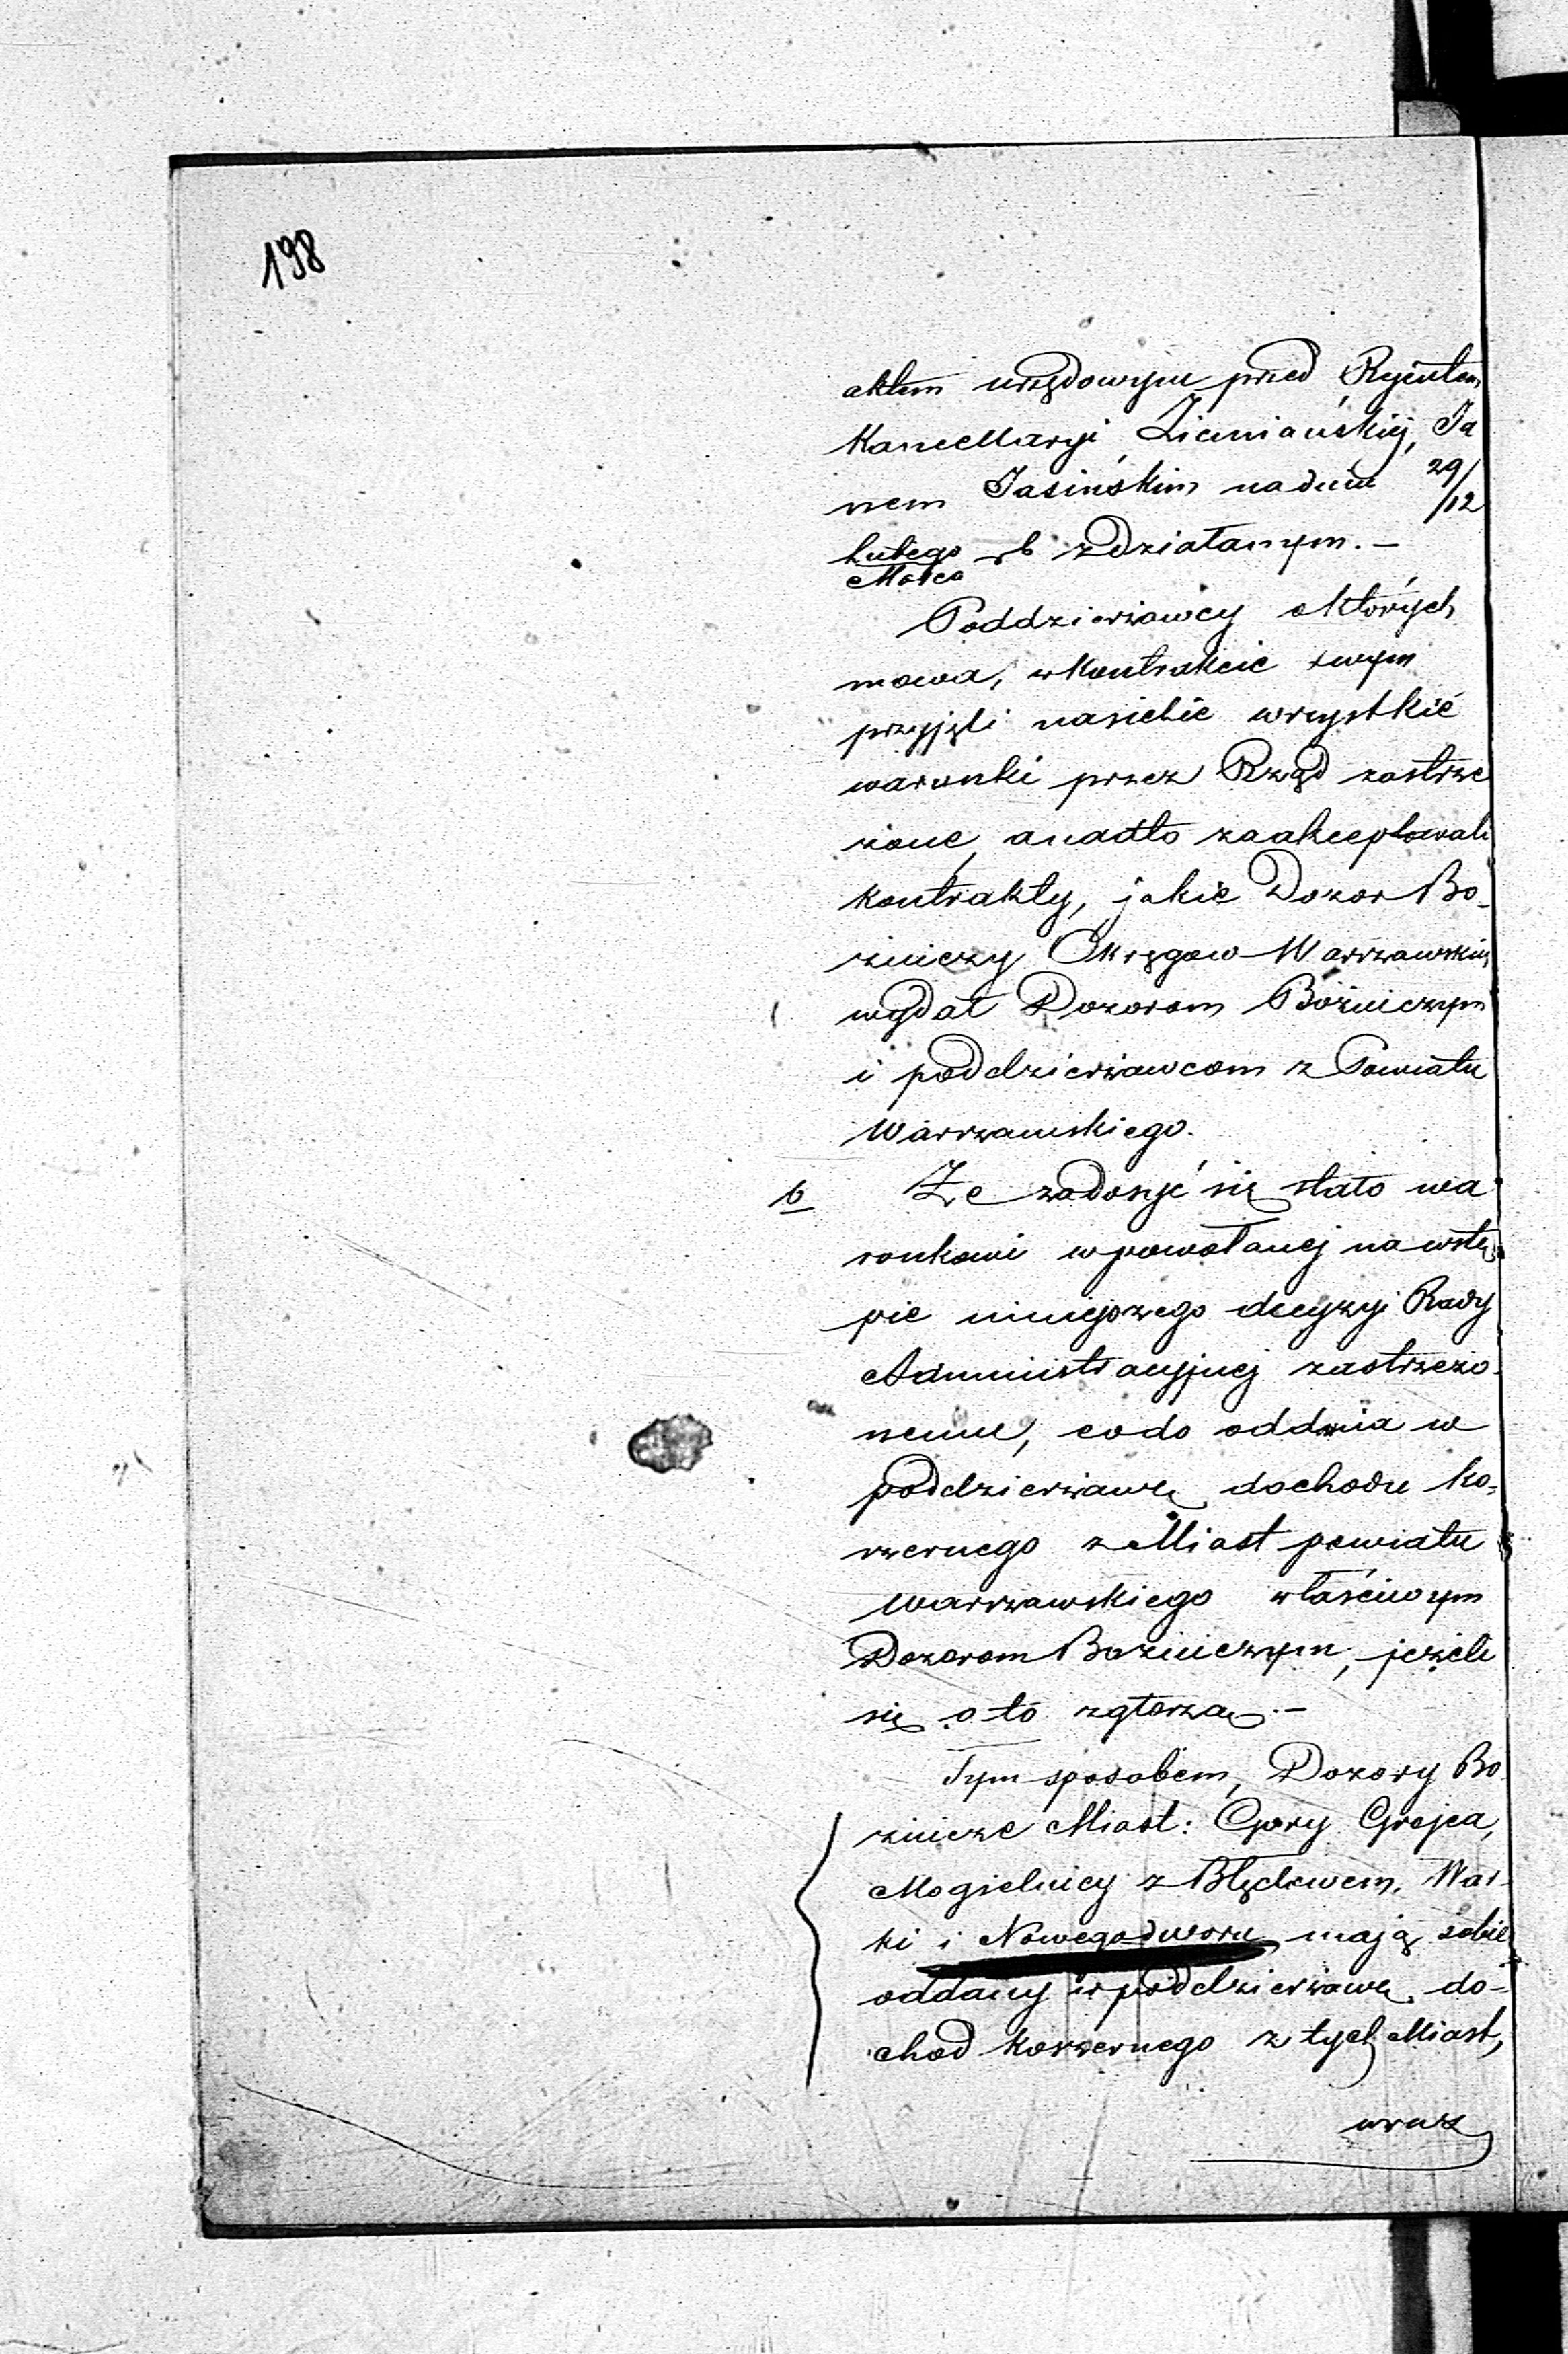 198
aktem urzędowym przed Rejentem
Kancellaryi Ziemiańskiej, Ja
nem Jasińskim na dniu 29/12
Lutego/Marca rb zdziałanym. –
Poddzierżawcy o których
mowa, w kontrakcie swym
przyjęli na siebie wszystkie
warunki przez Rząd zastrze
żone, a nadto zaakceptowali
kontrakty, jakie Dozor Bo-
żniczy Okręgow Warszawskich
wydał Dozorom Bóżniczym
i poddzierżawcom z Powiatu
Warszawskiego.
b Że zadosyć się stało wa
runkowi w powołanej na wstę
pie niniejszego decyzyi Rady
Administracyjnej zastrzeżo-
nemu, co do oddania w
poddzierżawę dochodu ko-
szernego z Miast powiatu
Warszawskiego właściwym
Dozorom Bożniczym, jeżeli
się o to zgłoszą. –
Tym sposobem, Dozory Bo
żnicze Miast: Gory Grojca,
Mogielnicy z Błędowem, War-
ki i Nowegodworu mają sobie
oddany w poddzierżawę do-
chod koszernego z tych Miast,
wraz